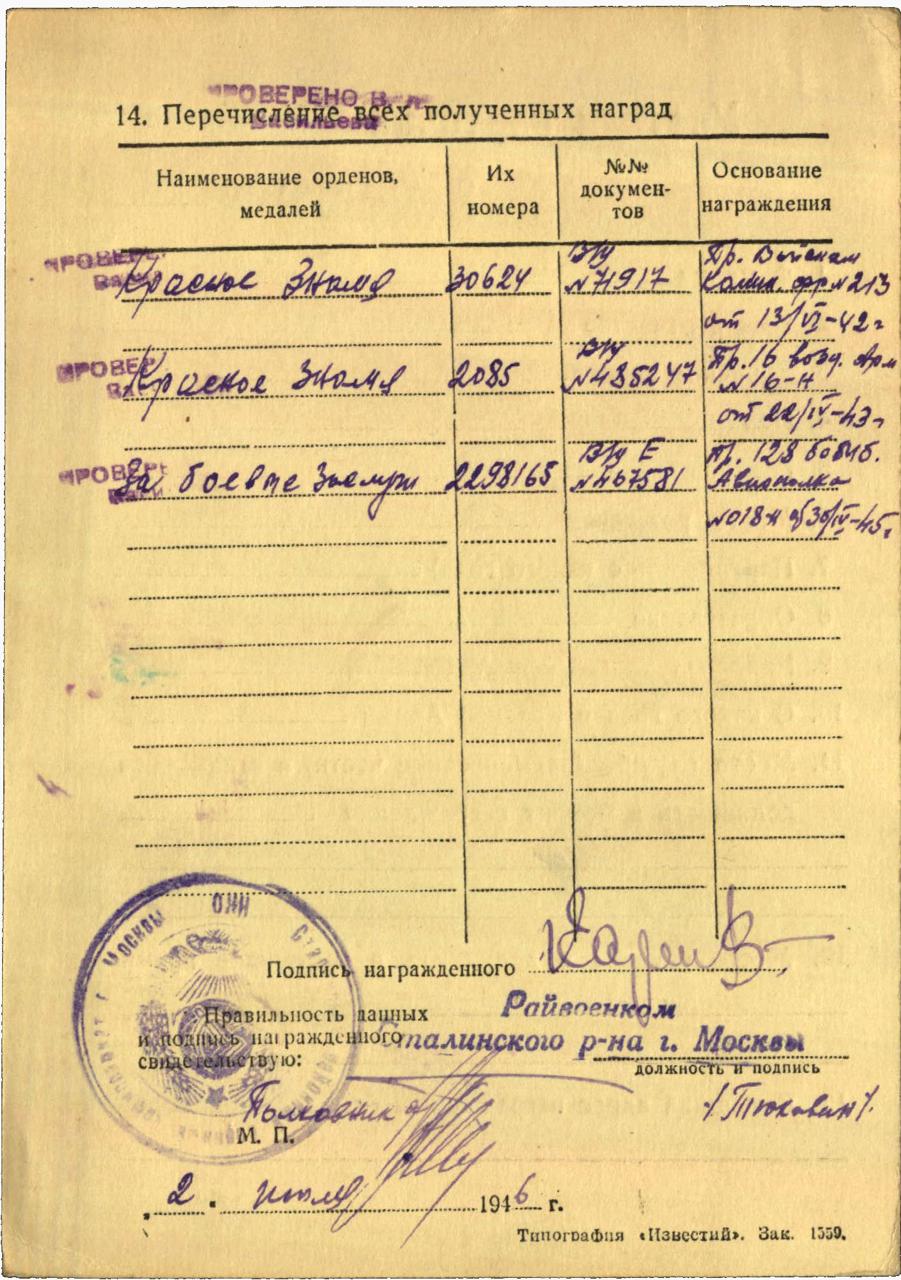 ПРОВЕРЕНО
Васильева
14. Перечисление всех полученных наград
Наименование орденов, медалей
Их номера
№№ докумен-тов
Основание награждения
ПРОВЕР
Красное Знамя 30624 В/у №71917 Пр. Войскам
Калин. фр №213
от 13/VI-42г
ПРОВЕР
Красное Знамя 2085 В/у №435247 Пр. 16 возд. Арм
№16-н
от 22/IV-43г
ПРОВЕР
За боевые Заслуги 2298165 В/у Е №467581 Пр. 128 бомб.
Авиаполка
№018-н от 30/IV-45г
Подпись награжденного
Правильность данных
и подпись награжденного
свидетельствую:
Райвоенком
Сталинского р-на г. Москвы
должность и подпись
Полковник
М. П.
/Тюкавин/.
„2" июля 1946 г.
Типография «Известий». Зак. 1559.